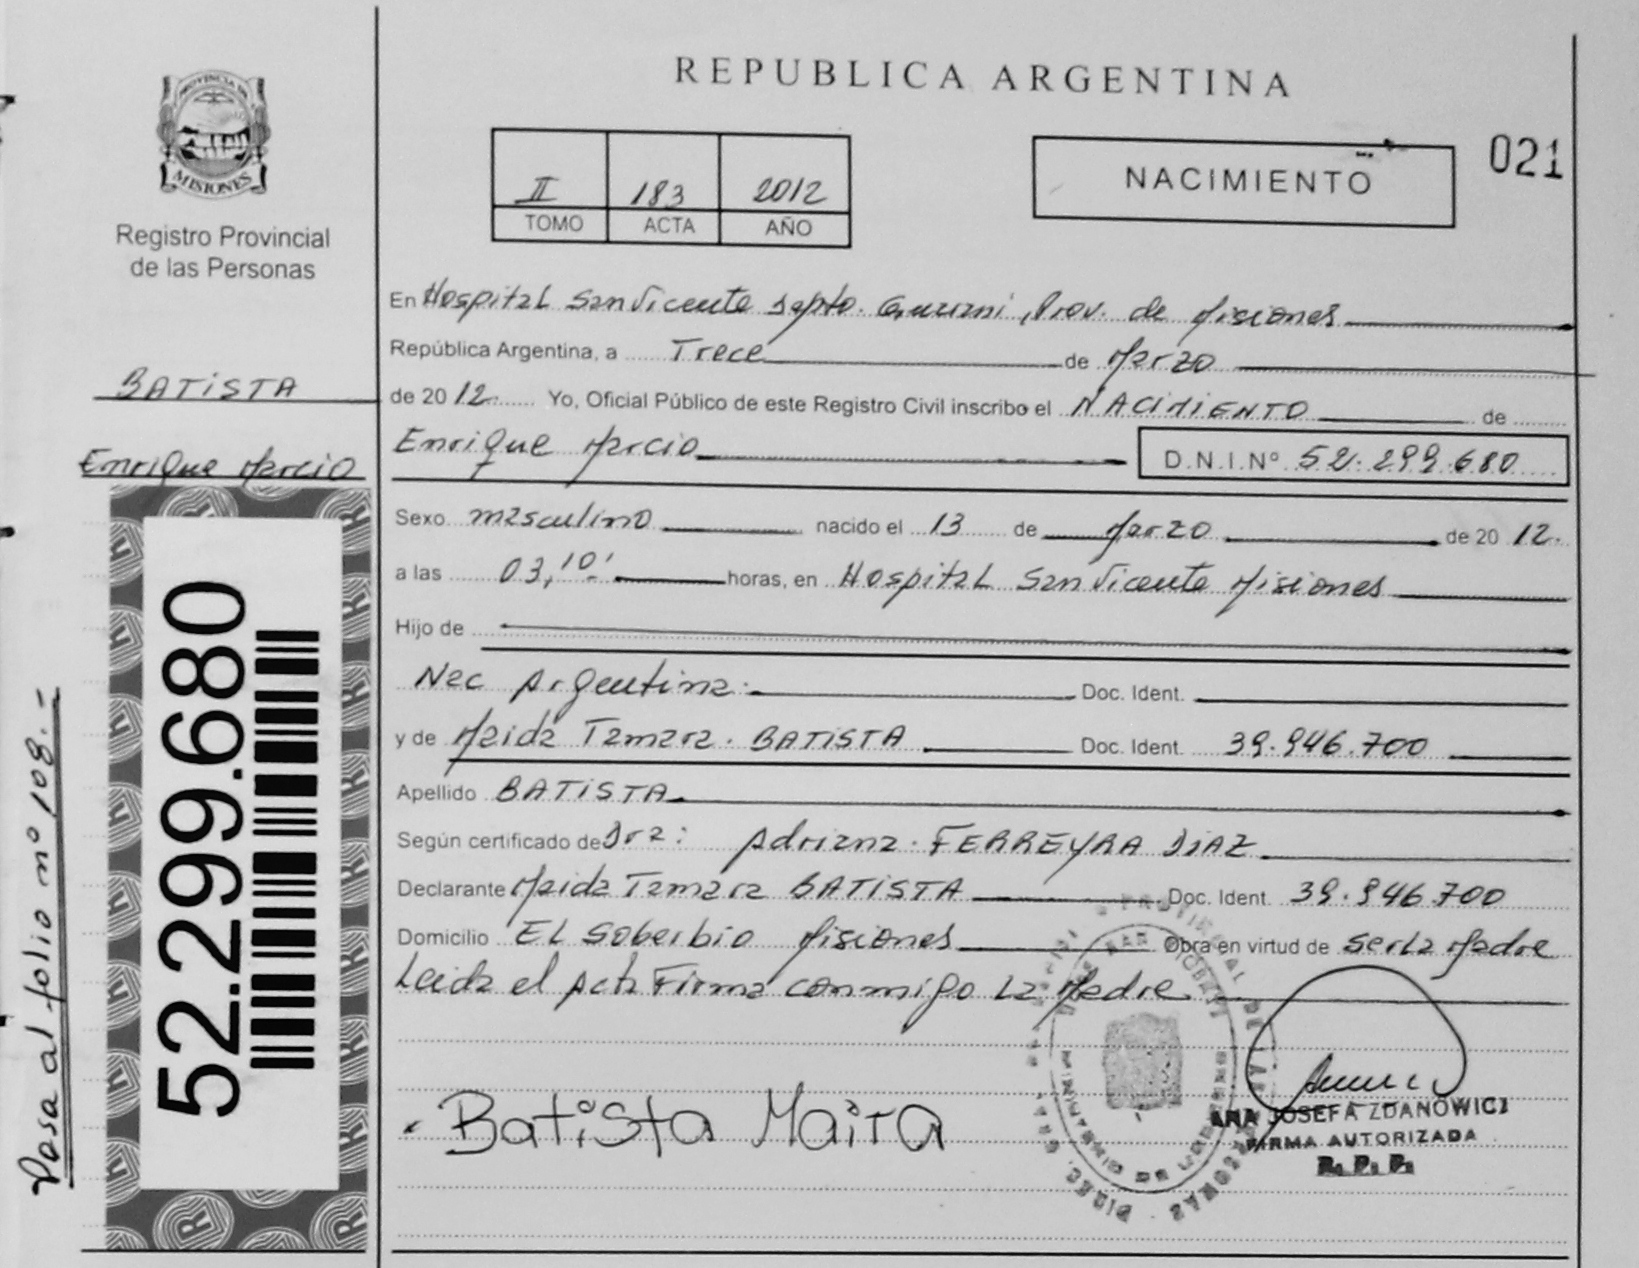 PROVINCIA DE
MISIONES
Registro Provincial
de las Personas
BATISTA
Enrique Marcio
52.299.680
Pasa al folio nº 108.-
REPUBLICA ARGENTINA
II 183 2012
TOMO ACTA AÑO
NACIMIENTO
021
En Hospital San Vicente Depto. Guarani, Prov. de Misiones
República Argentina, a Trece de Marzo
de 2012. Yo, Oficial Público de este Registro Civil inscribo el NACIMIENTO de
Enrique Marcio D.N.I.Nº 52.299.680
Sexo masculino nacido el 13 de Marzo de 2012.
a las 03,10' horas, en Hospital San Vicente Misiones
Hijo de
Nac Argentina. Doc. Ident.
y de Maida Tamara. BATISTA Doc. Ident. 39.946.700
Apellido BATISTA
Según certificado de Dra: Adriana. FERREYRA DIAZ
Declarante Maida Tamara BATISTA Doc. Ident. 39.946.700
Domicilio EL Soberbio Misiones Obra en virtud de ser La Madre
Leida el Acta Firma conmigo La Madre
Batista Maira
ANA JOSEFA ZDANOWICZ
FIRMA AUTORIZADA
R. P. P.